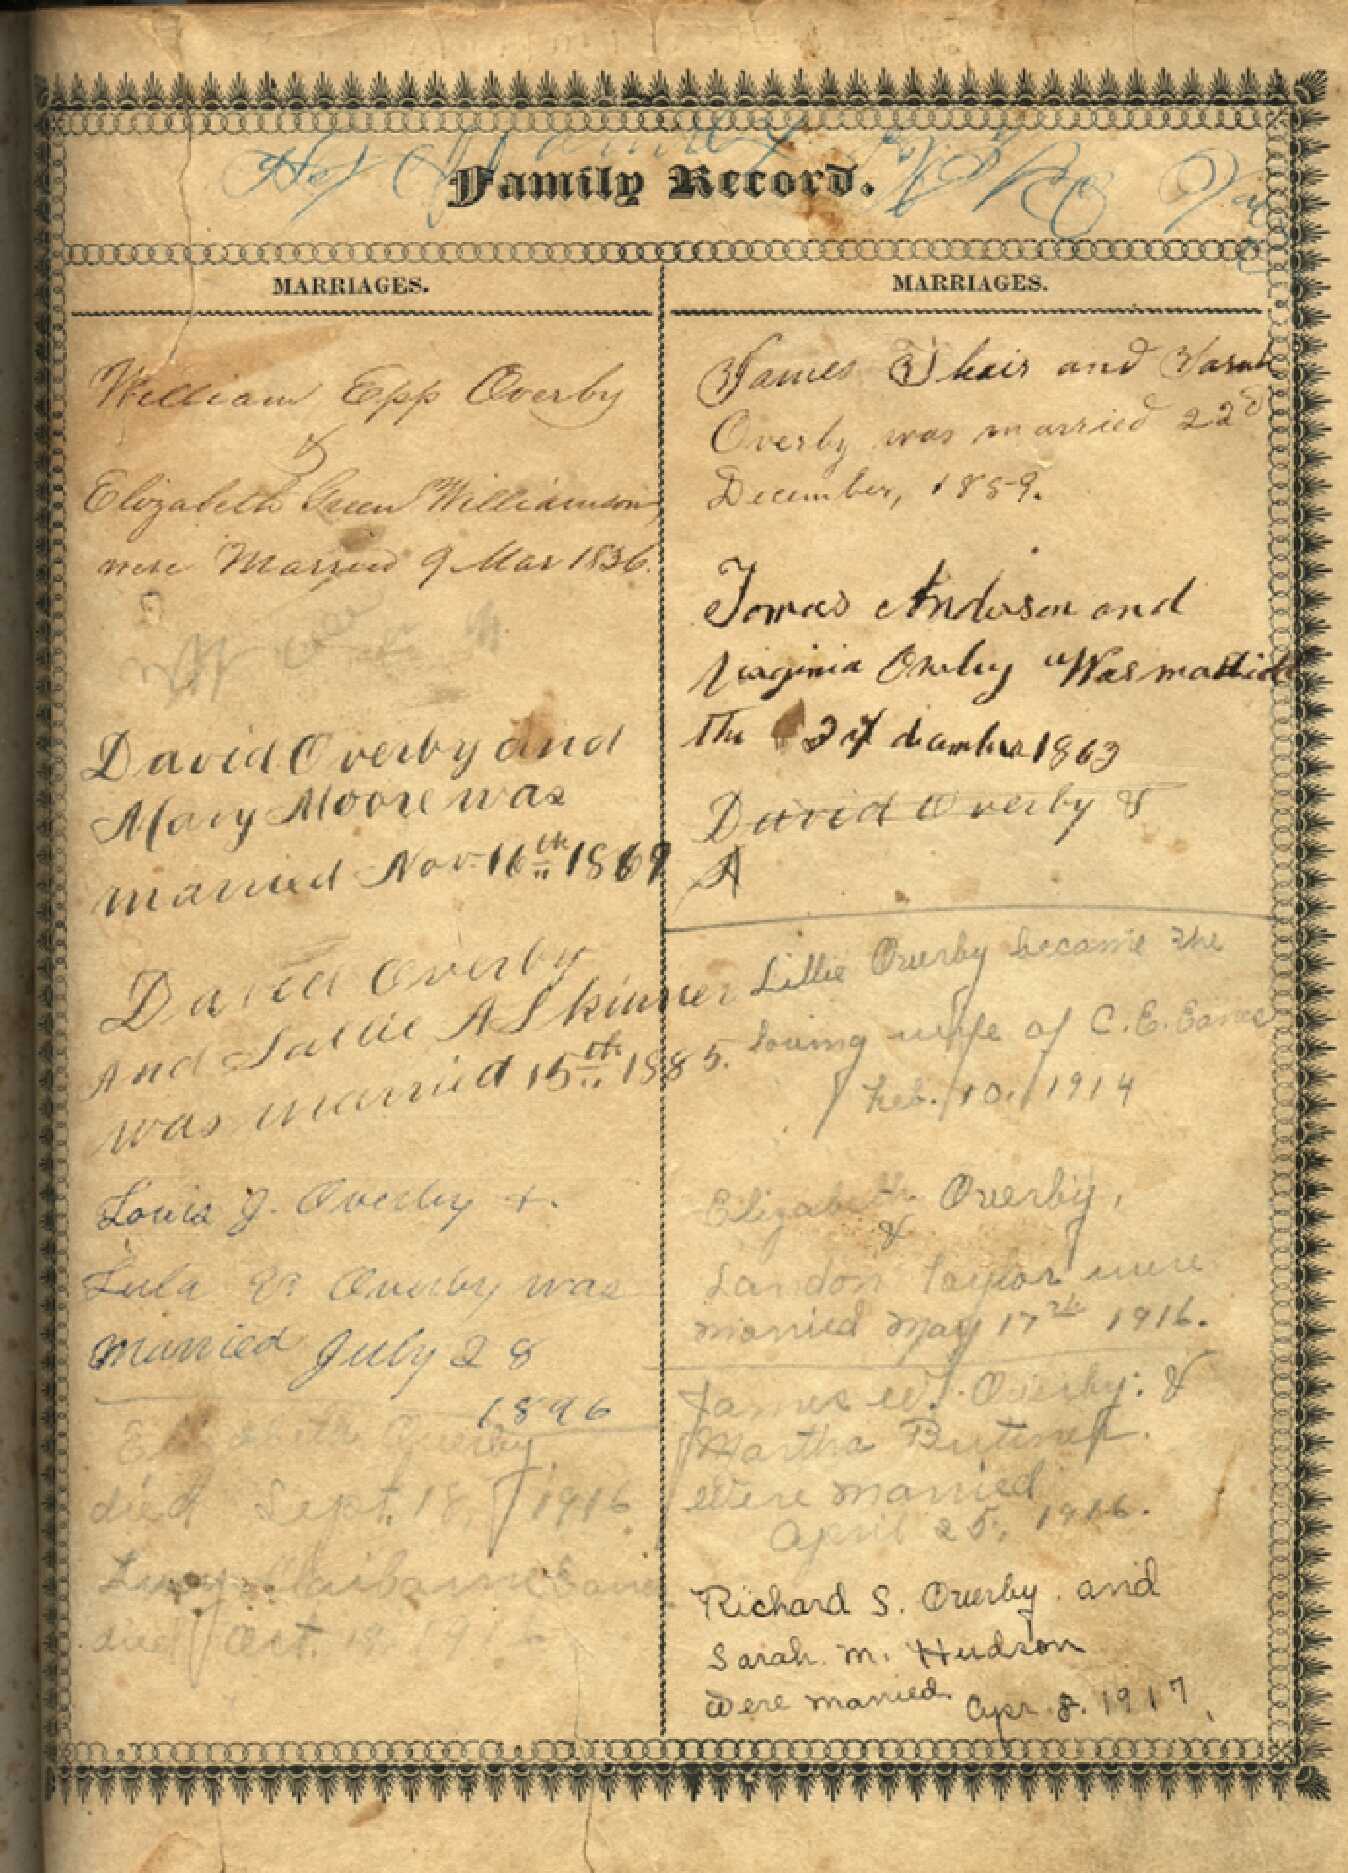 Family Record.
MARRIAGES.
William Epp Overby
&
Elizabeth Green Williamson,
were Married 9 Mar 1836.
David Overby and
Mary Moore was
married Nov. 16th 1869
David Overby
And Sallie A Skinner
was married 15th 1885.
Louis J. Overby +.
Lula Overby was
married July 28
1896
Elizabeth Overby
died Sept. 18, 1916
Lucy Claibourne Eanes
died Oct. 191
MARRIAGES.
James and Sarah
Overby was married 22d
December, 1859.
Tomas Anderson and
Virginia Overby Was married
the 24 1863
David Overby &
A
Lillie Overby became the
loving wife of C. E. Eanes
Feb. 10. 1914
Elizabeth Overby,
&
Landon Taylor were
married May 17th 1916.
James W. Overby: &
Martha
Were married
April 25, 1916.
Richard S. Overby. and
Sarah. M. Hudson
were married Apr. 8. 1917.